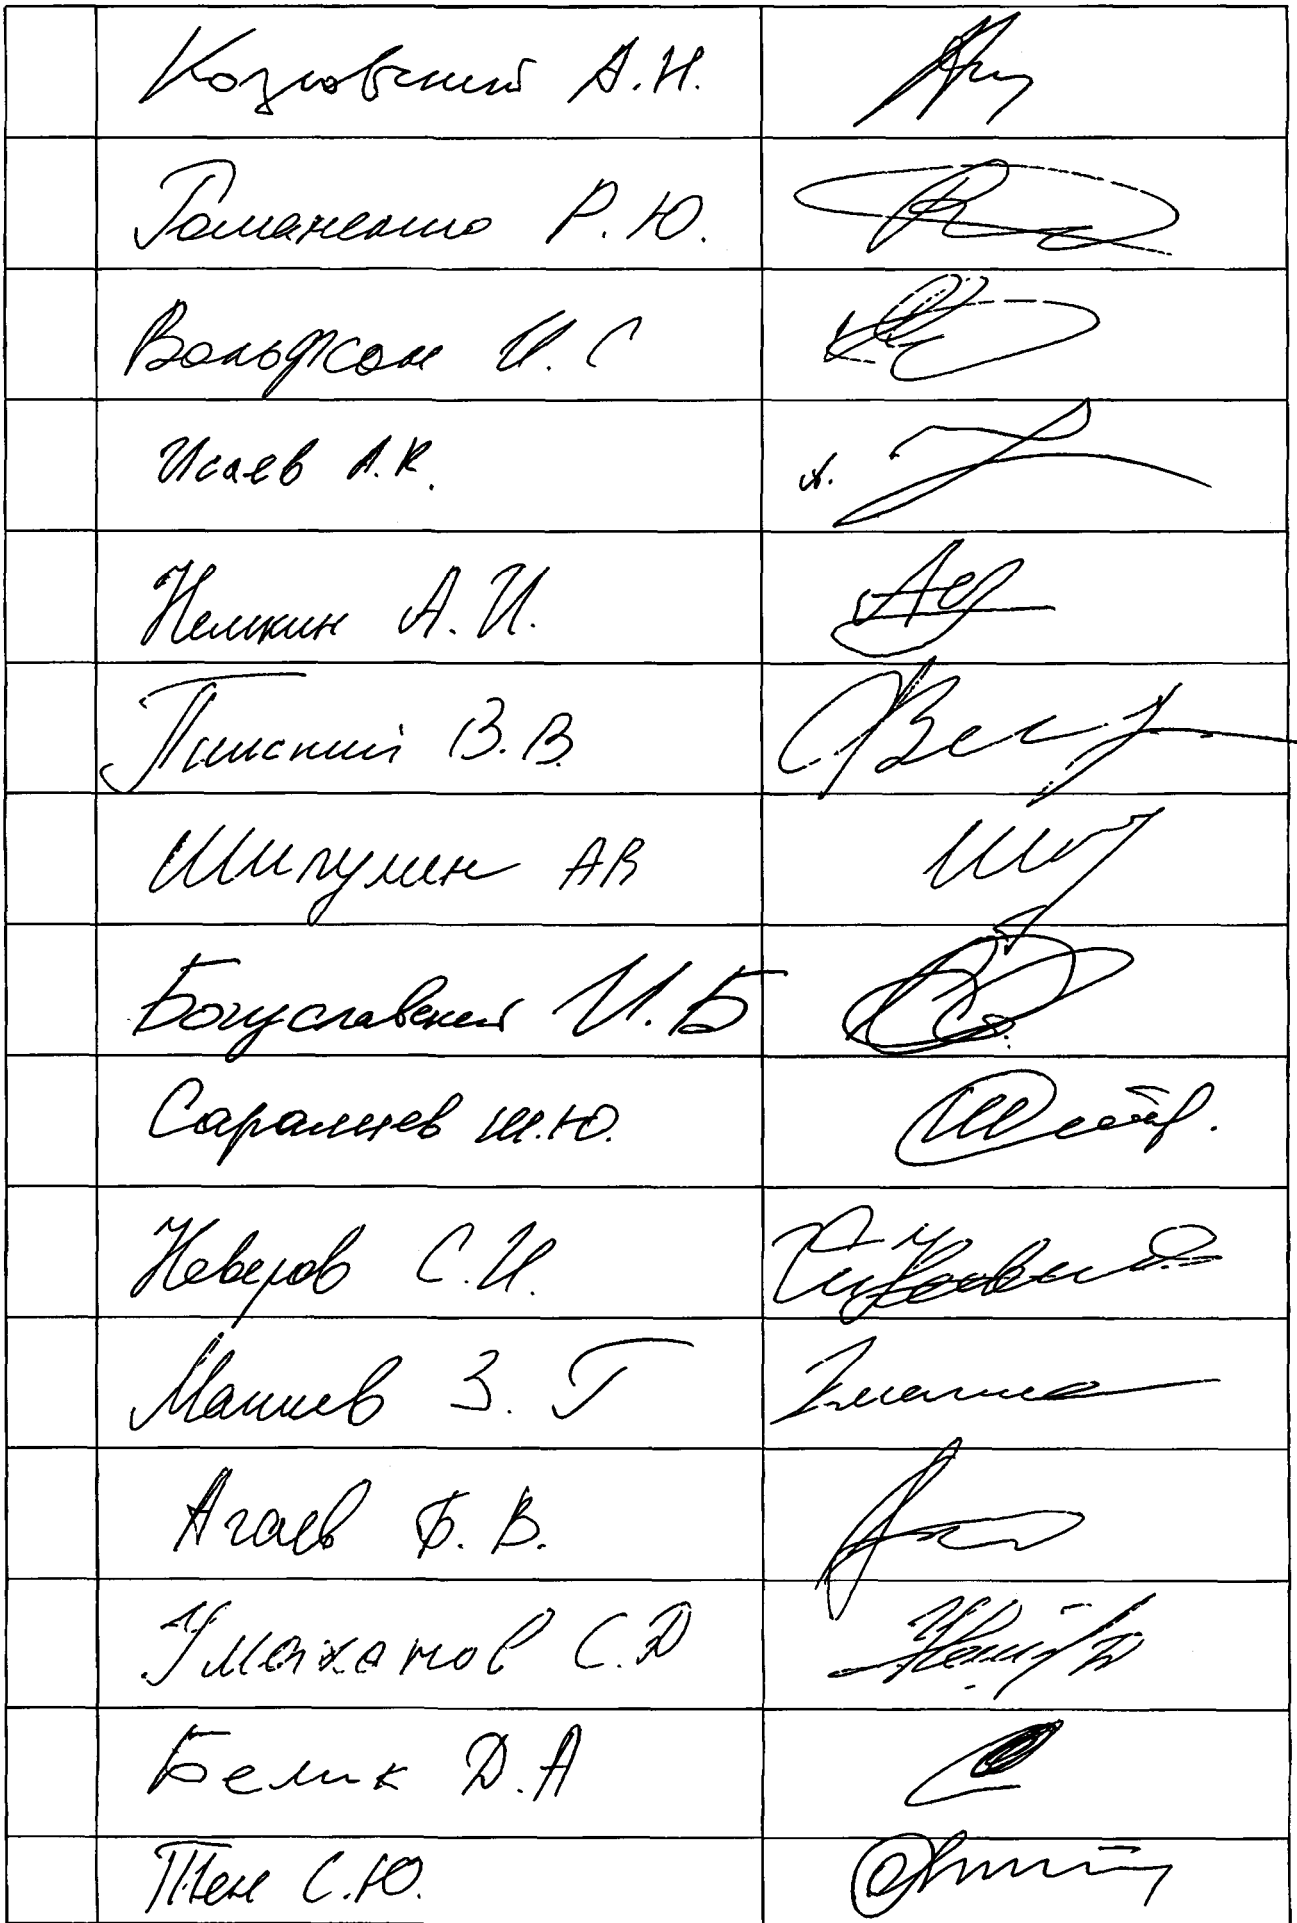 Козловский А.Н.
Романенко Р.Ю.
Вольфсон И.С
Исаев А.К.
Немкин А.И.
Пинский В.В.
Шипулин АВ
Богуславский И.Б
Саралиев Ш.Ю.
Неверов С.И.
Маниев З.Г
Агаев Б.В.
Умаханов С.Д
Белик Д.А
Тен С.Ю.